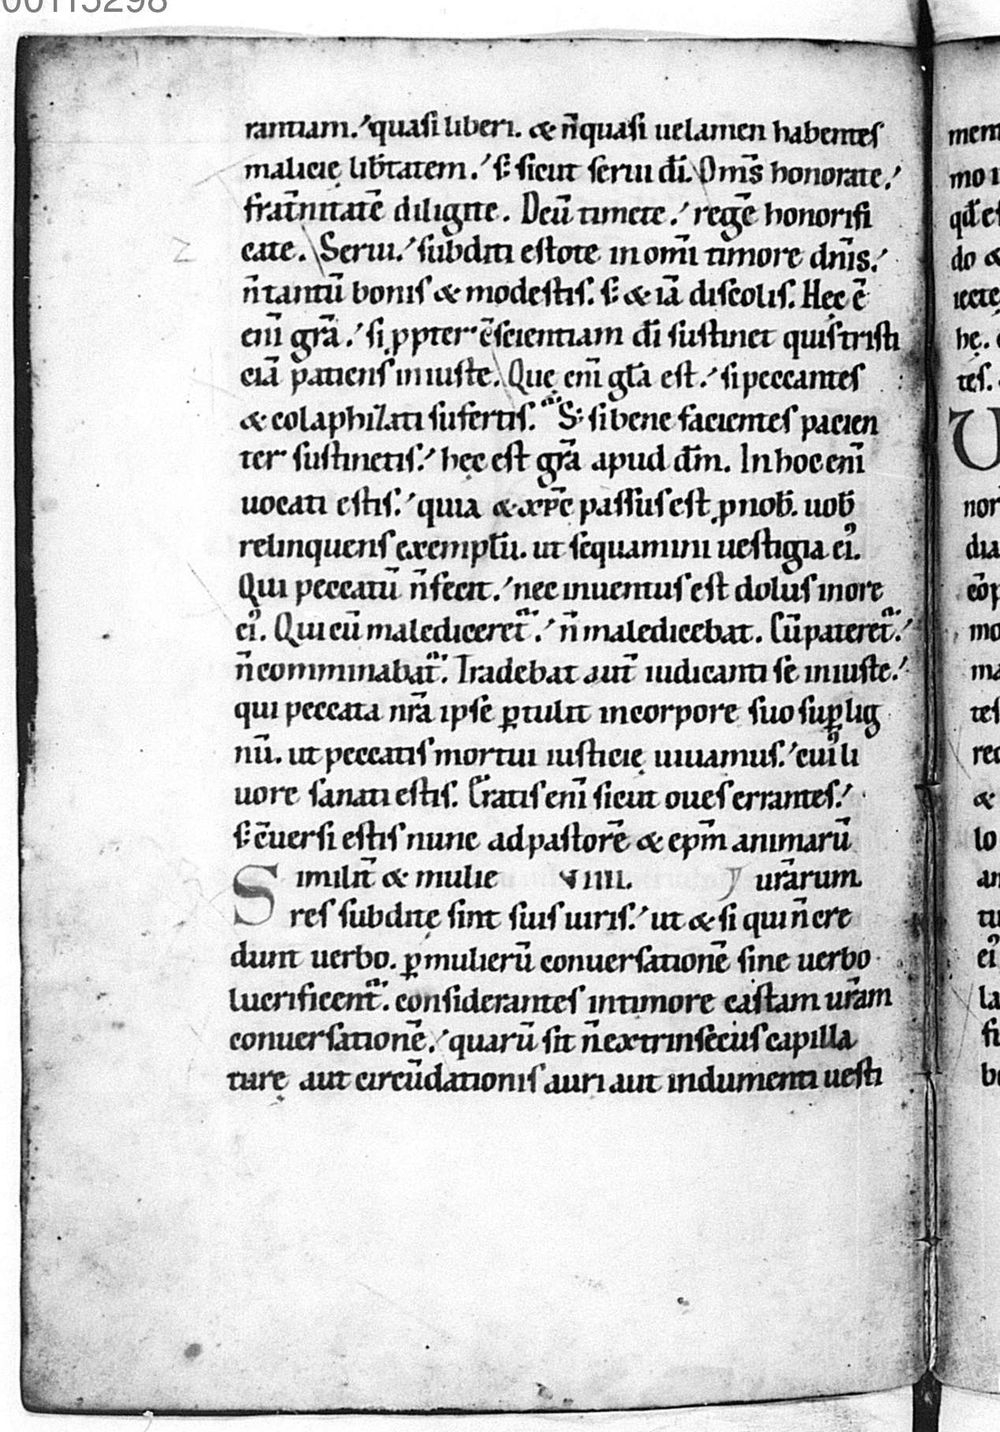 00115298
rantiam. quasi liberi. & n̄ quasi uelamen habentes
malicię lib̄tatem. s; sicut serui dī. Om̄s honorate.
frat̄nitatē diligite. Deū timete. regē honorifi
cate. Serui. subditi estote in om̄i timore dn̄is.
n̄ tantū bonis & modestis. s; & iā discolis. Hęc ē
eni̅ gr̄a. si ꝓpter c̄scientiam dī sustinet quis tristi
ciā patiens iniuste. Quę eni̅ gl̄a est. si peccantes
& colaphizati sufertis. S; si bene facientes pacien
ter sustinetis. hęc est gr̄a apud dm̄. In hoc eni̅
uocati estis. quia & xp̄c passus est ꝓ nob̄. uob̄
relinquens exemplū. ut sequamini uestigia eiꝰ.
Qui peccatū n̄ fecit. nec inuentus est dolus in ore
eiꝰ. Qui cū malediceret̄. n̄ maledicebat. Cū pateret̄.
n̄ comminabat̄. Tradebat aut̄ iudicanti se iniuste.
qui peccata nr̄a ipse ꝑtulit in corpore suo suꝑ lig
nū. ut peccatis mortui iusticię uiuamus. cuiꝰ li
uore sanati estis. Eratis eni̅ sicut oues errantes.
s; c̄uersi estis nunc ad pastorē & epm̄ animarū
Similit̄ & mulie VIIII. urārum
res subditę sint suis uiris. ut & si qui n̄ cre
dunt uerbo. ꝑ mulierū conuersationē sine uerbo
lucrificent̄. considerantes in timore castam ur̄am
conuersationē. quarū sit n̄ extrinsecus capilla
turę aut circūdationis auri aut indumenti uesti